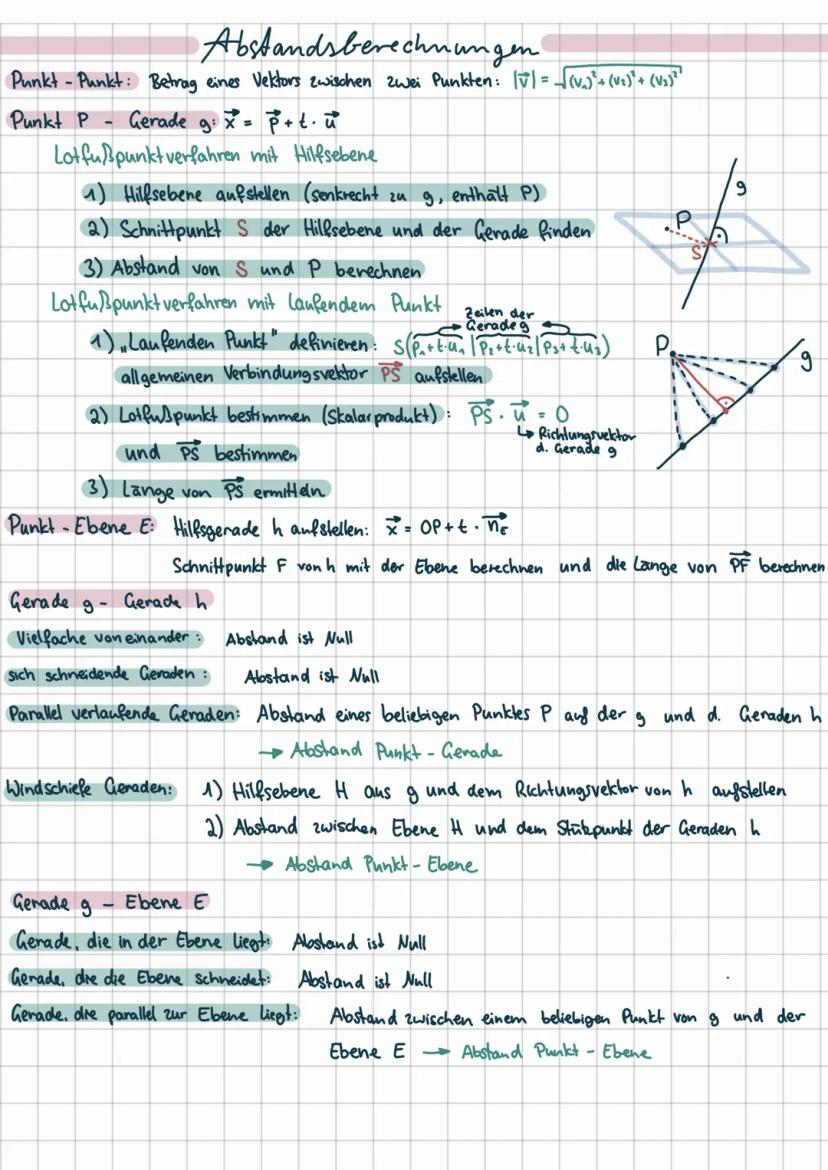 Abstandsberechnungen
Punkt - Punkt: Betrag eines Vektors zwischen zwei Punkten: |v⃗| = √((v₁)² + (v₂)² + (v₃)²)
Punkt P - Gerade g: x⃗ = p⃗ + t · u⃗
Lotfußpunktverfahren mit Hilfsebene
1) Hilfsebene aufstellen (senkrecht zu g, enthält P)
2) Schnittpunkt S der Hilfsebene und der Gerade finden
3) Abstand von S und P berechnen
g
P
S
Lotfußpunktverfahren mit laufendem Punkt
Zeilen der
Gerade g
1) „Laufenden Punkt" definieren: S(p₁+t·u₁ | p₂+t·u₂ | p₃+t·u₃)
allgemeinen Verbindungsvektor PS⃗ aufstellen
2) Lotfußpunkt bestimmen (Skalarprodukt): PS⃗ · u⃗ = 0
↳ Richtungsvektor
d. Gerade g
und PS⃗ bestimmen
3) Länge von PS⃗ ermitteln
P
g
Punkt - Ebene E: Hilfsgerade h aufstellen: x⃗ = OP + t · n⃗_E
Schnittpunkt F von h mit der Ebene berechnen und die Länge von PF⃗ berechnen
Gerade g - Gerade h
Vielfache voneinander: Abstand ist Null
sich schneidende Geraden: Abstand ist Null
Parallel verlaufende Geraden: Abstand eines beliebigen Punktes P auf der g und d. Geraden h
→ Abstand Punkt - Gerade
Windschiefe Geraden: 1) Hilfsebene H aus g und dem Richtungsvektor von h aufstellen
2) Abstand zwischen Ebene H und dem Stützpunkt der Geraden h
→ Abstand Punkt - Ebene
Gerade g - Ebene E
Gerade, die in der Ebene liegt: Abstand ist Null
Gerade, die die Ebene schneidet: Abstand ist Null
Gerade, die parallel zur Ebene liegt: Abstand zwischen einem beliebigen Punkt von g und der
Ebene E → Abstand Punkt - Ebene